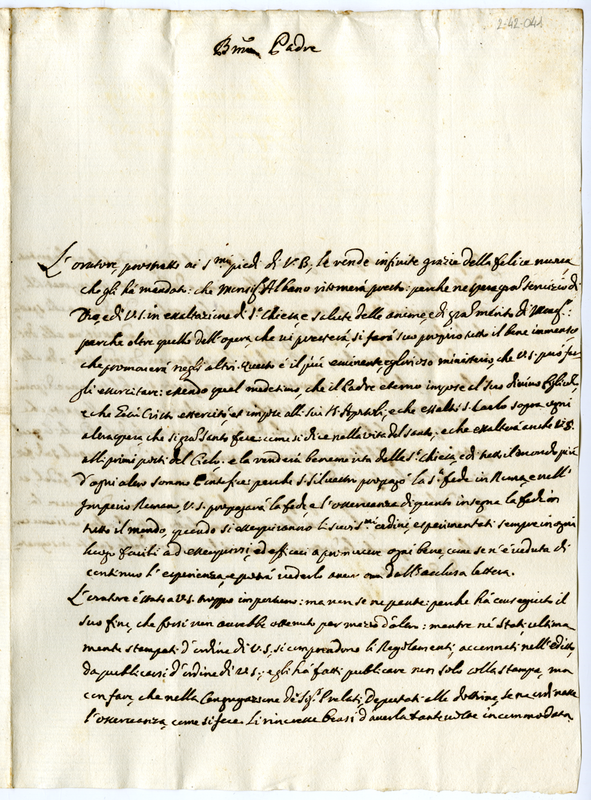 2-42-041
Bmo Padre
L'oratore, prostrato ai Smi piedi di V. B., le rende infinite grazie della felice nuova
che gli hà mandata: che Monsigr Albano ritornerà presto: perche ne spera gran servizio di
Dio, e di V.S. in exaltazione di Sta Chiesa, e salute delle anime, e di gran merito di Monsr.:
perche oltre quello dell'opera, che vi presterà, si farà suo proprio tutto il bene immenso
che promoverà negli altri. Questo è il più eminente e glorioso ministerio, che V.S. può far
gli esercitare: essendo quel medesimo, che il Padre eterno impose al suo divino Figliolo,
e che Giesù Cristo esercitò, et impose alli suoi Sti Apostoli; e che esaltò S. Carlo sopra ogni
altra opera che si può santo fare: come si dice nella vita del santo; e che exalterà anche V.S.
alli primi posti del Cielo: e la renderà benemerita della Sta Chiesa, e di tutto il mondo più
d'ogni altro sommo Pontefice: perche S. Silvestro propagò la Sta fede in Roma, e nell'
Imperio Romano, V.S. propagarà la fede e l'osservanza di quanto insegna la fede in
tutto il mondo, quando si eseguiranno li suoi Smi ordini, esperimentati sempre in ogni
luogo facili ad eseguirsi, ed efficaci a promovere ogni bene, come se n'è veduta di
continuo l'esperienza, e potrà vederlo ancor ora dall'acclusa lettera.
L'oratore è stato a V.S. troppo importuno: ma non se ne pente: perche hà conseguito il
suo fine, che forsi non averebbe ottenuto per mezo d'altri: mentre nè stati ultima
mente stampati d'ordine di V.S. si comprendono li Regolamenti accennati nell'editto
da publicarsi d'ordine di V.S.; e gli hà fatti publicare non solo colla stampa, ma
con fare, che nella Congregazione de' Sigri Prelati Deputati alle dottrine, se ne ordinasse
l'osservanza, come si fece. Li rincresce bensi d'averla tante volte incommodata,